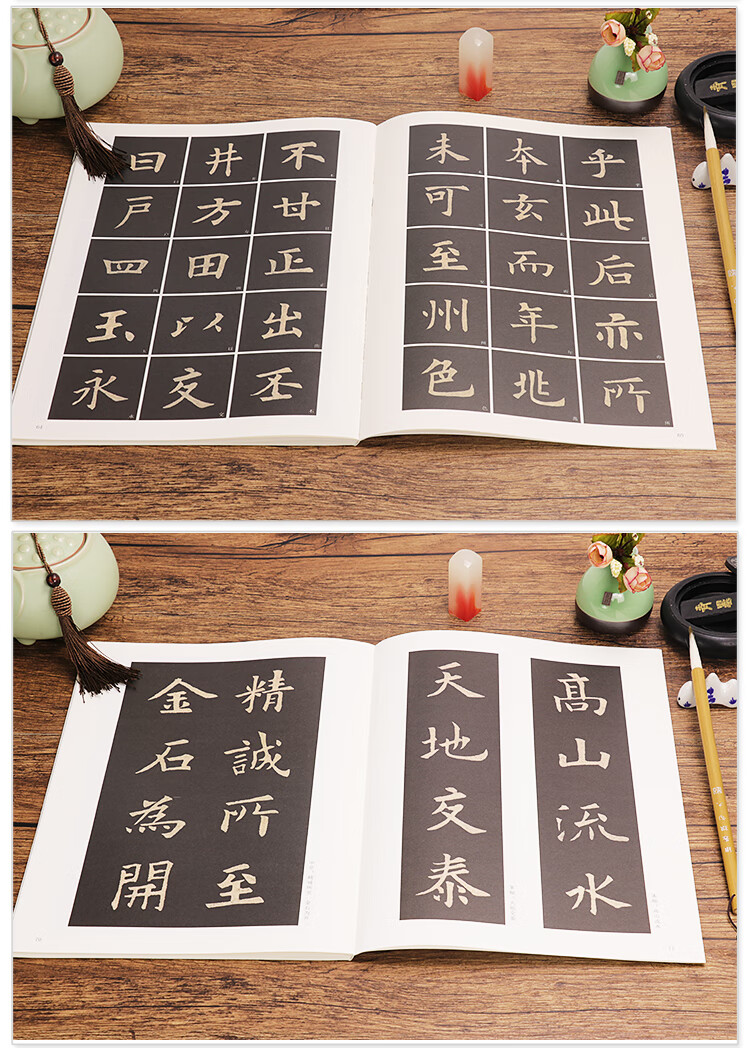 不甘正出丕
井方田以交
曰戶四玉永
乎此后亦所
夲玄而年兆
未可至州色
精誠所至
金石為開
髙山流水
天地交泰